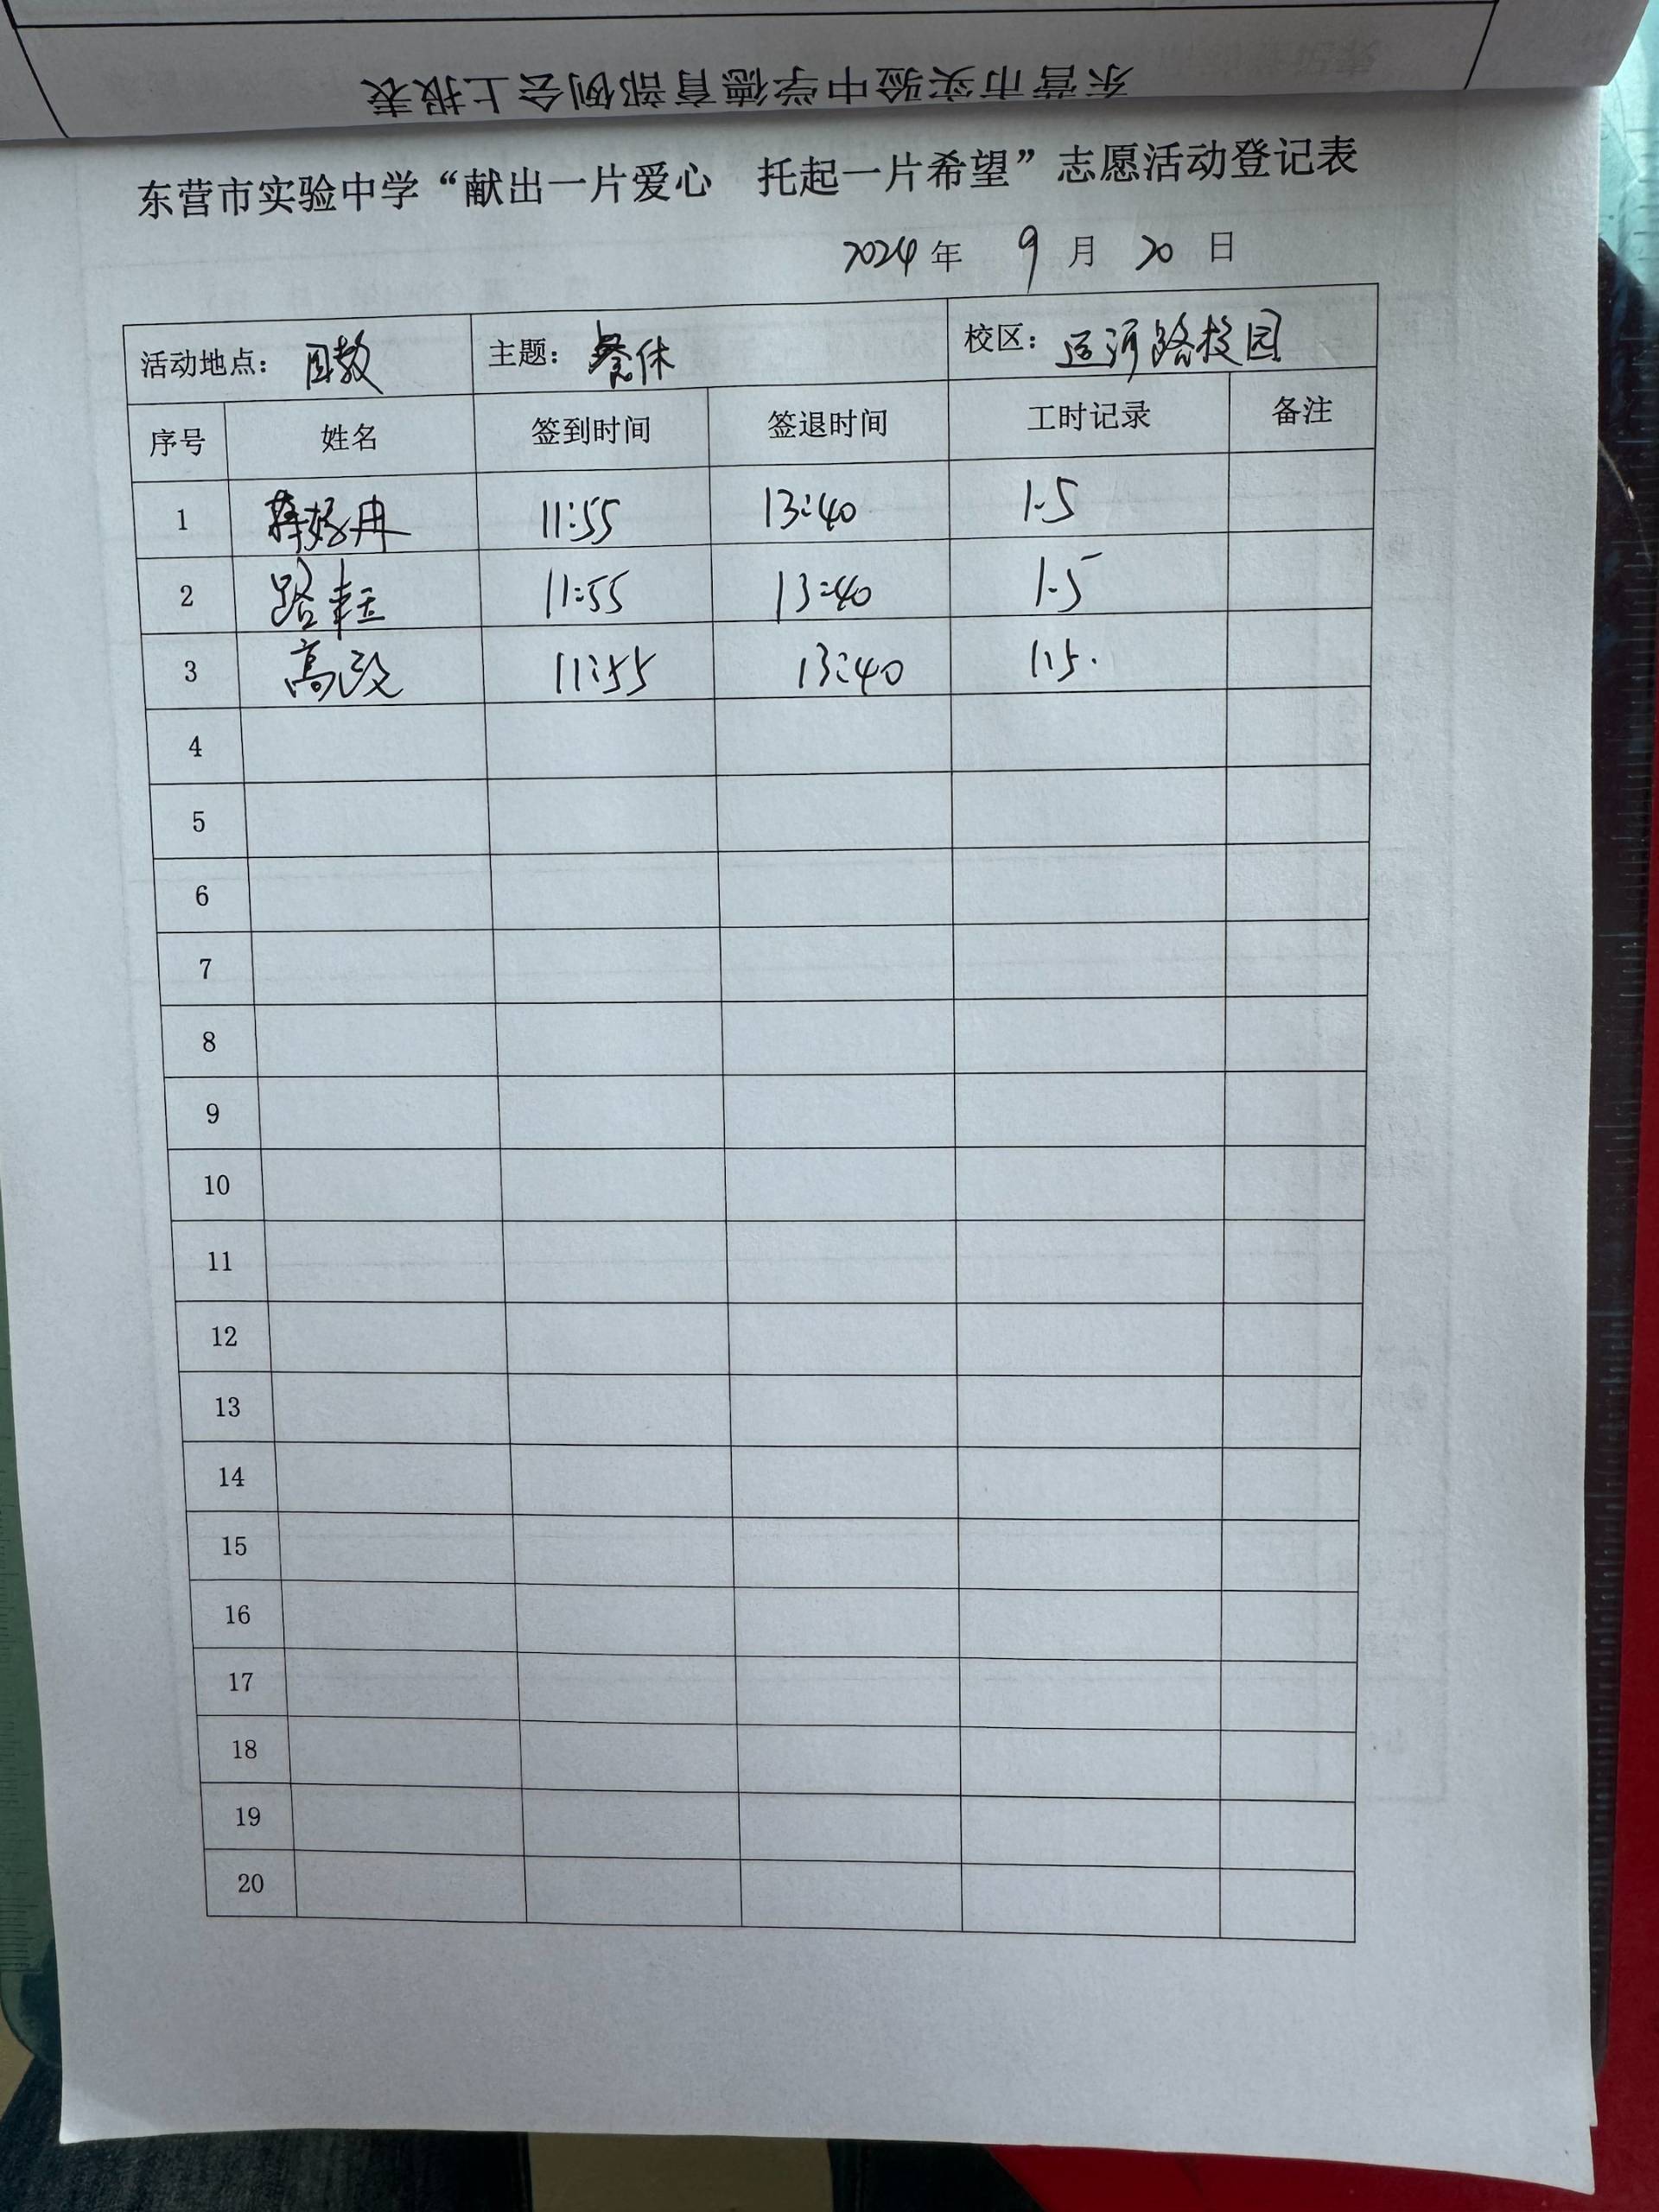 东营市实验中学德育部例会上报表
东营市实验中学“献出一片爱心 托起一片希望”志愿活动登记表
2024 年 9 月 20 日
活动地点: 主题: 餐休 校区: 运河路校园
序号 姓名 签到时间 签退时间 工时记录 备注
1 11:55 13:40 1.5
2 路 11:55 13:40 1.5
3 高 11:55 13:40 1.5.
4
5
6
7
8
9
10
11
12
13
14
15
16
17
18
19
20